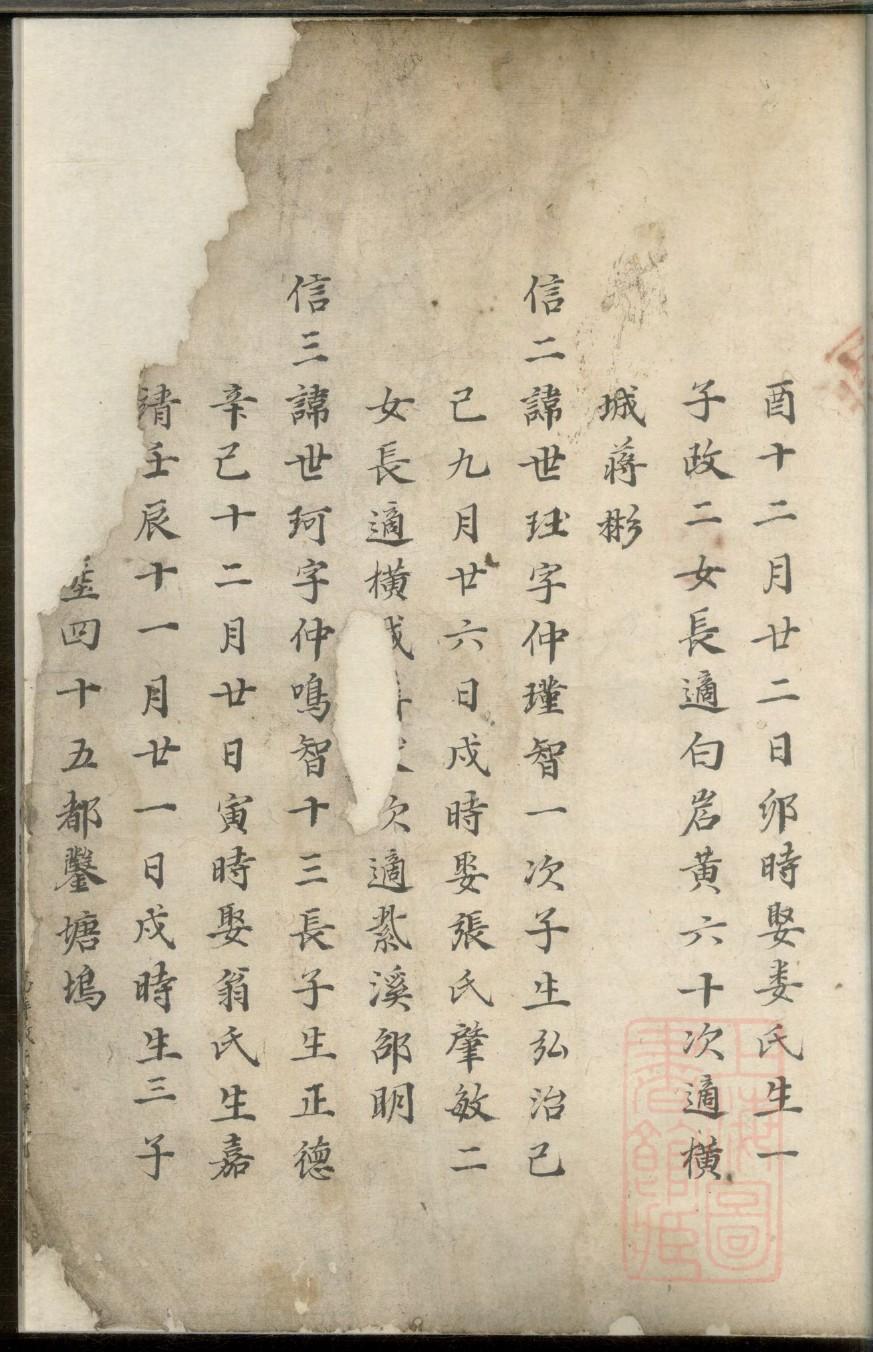 酉十二月廿二日卯時娶娄氏生一
子政二女長適白岩黃六十次適橫
城蔣彬
信二諱世珏字仲瑾智一次子生弘治己
己九月廿六日戌時娶張氏肇敏二
女長適橫城次適紮溪邵明
信三諱世珂字仲鳴智十三長子生正德
辛巳十二月廿日寅時娶翁氏生嘉
靖壬辰十一月廿一日戌時生三子
四十五都鑿塘塢
上海圖書館藏